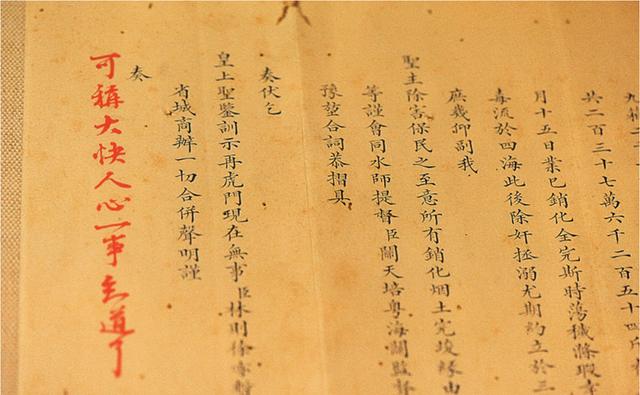 共二百三十七萬六千二百五十四斤
月十五日業已銷化全完斯時蕩穢滌瑕幸
毒流於四海此後除奸拯溺尤期約立於三
庶幾仰副我
聖主除害保民之至意所有銷化烟土完竣緣由
等謹會同水師提督臣關天培粵海關監督
豫堃合詞恭摺具
奏伏乞
皇上聖鑒訓示再虎門現在無事臣林則徐亦暫
省城商辦一切合併聲明謹
奏
可稱大快人心一事知道了